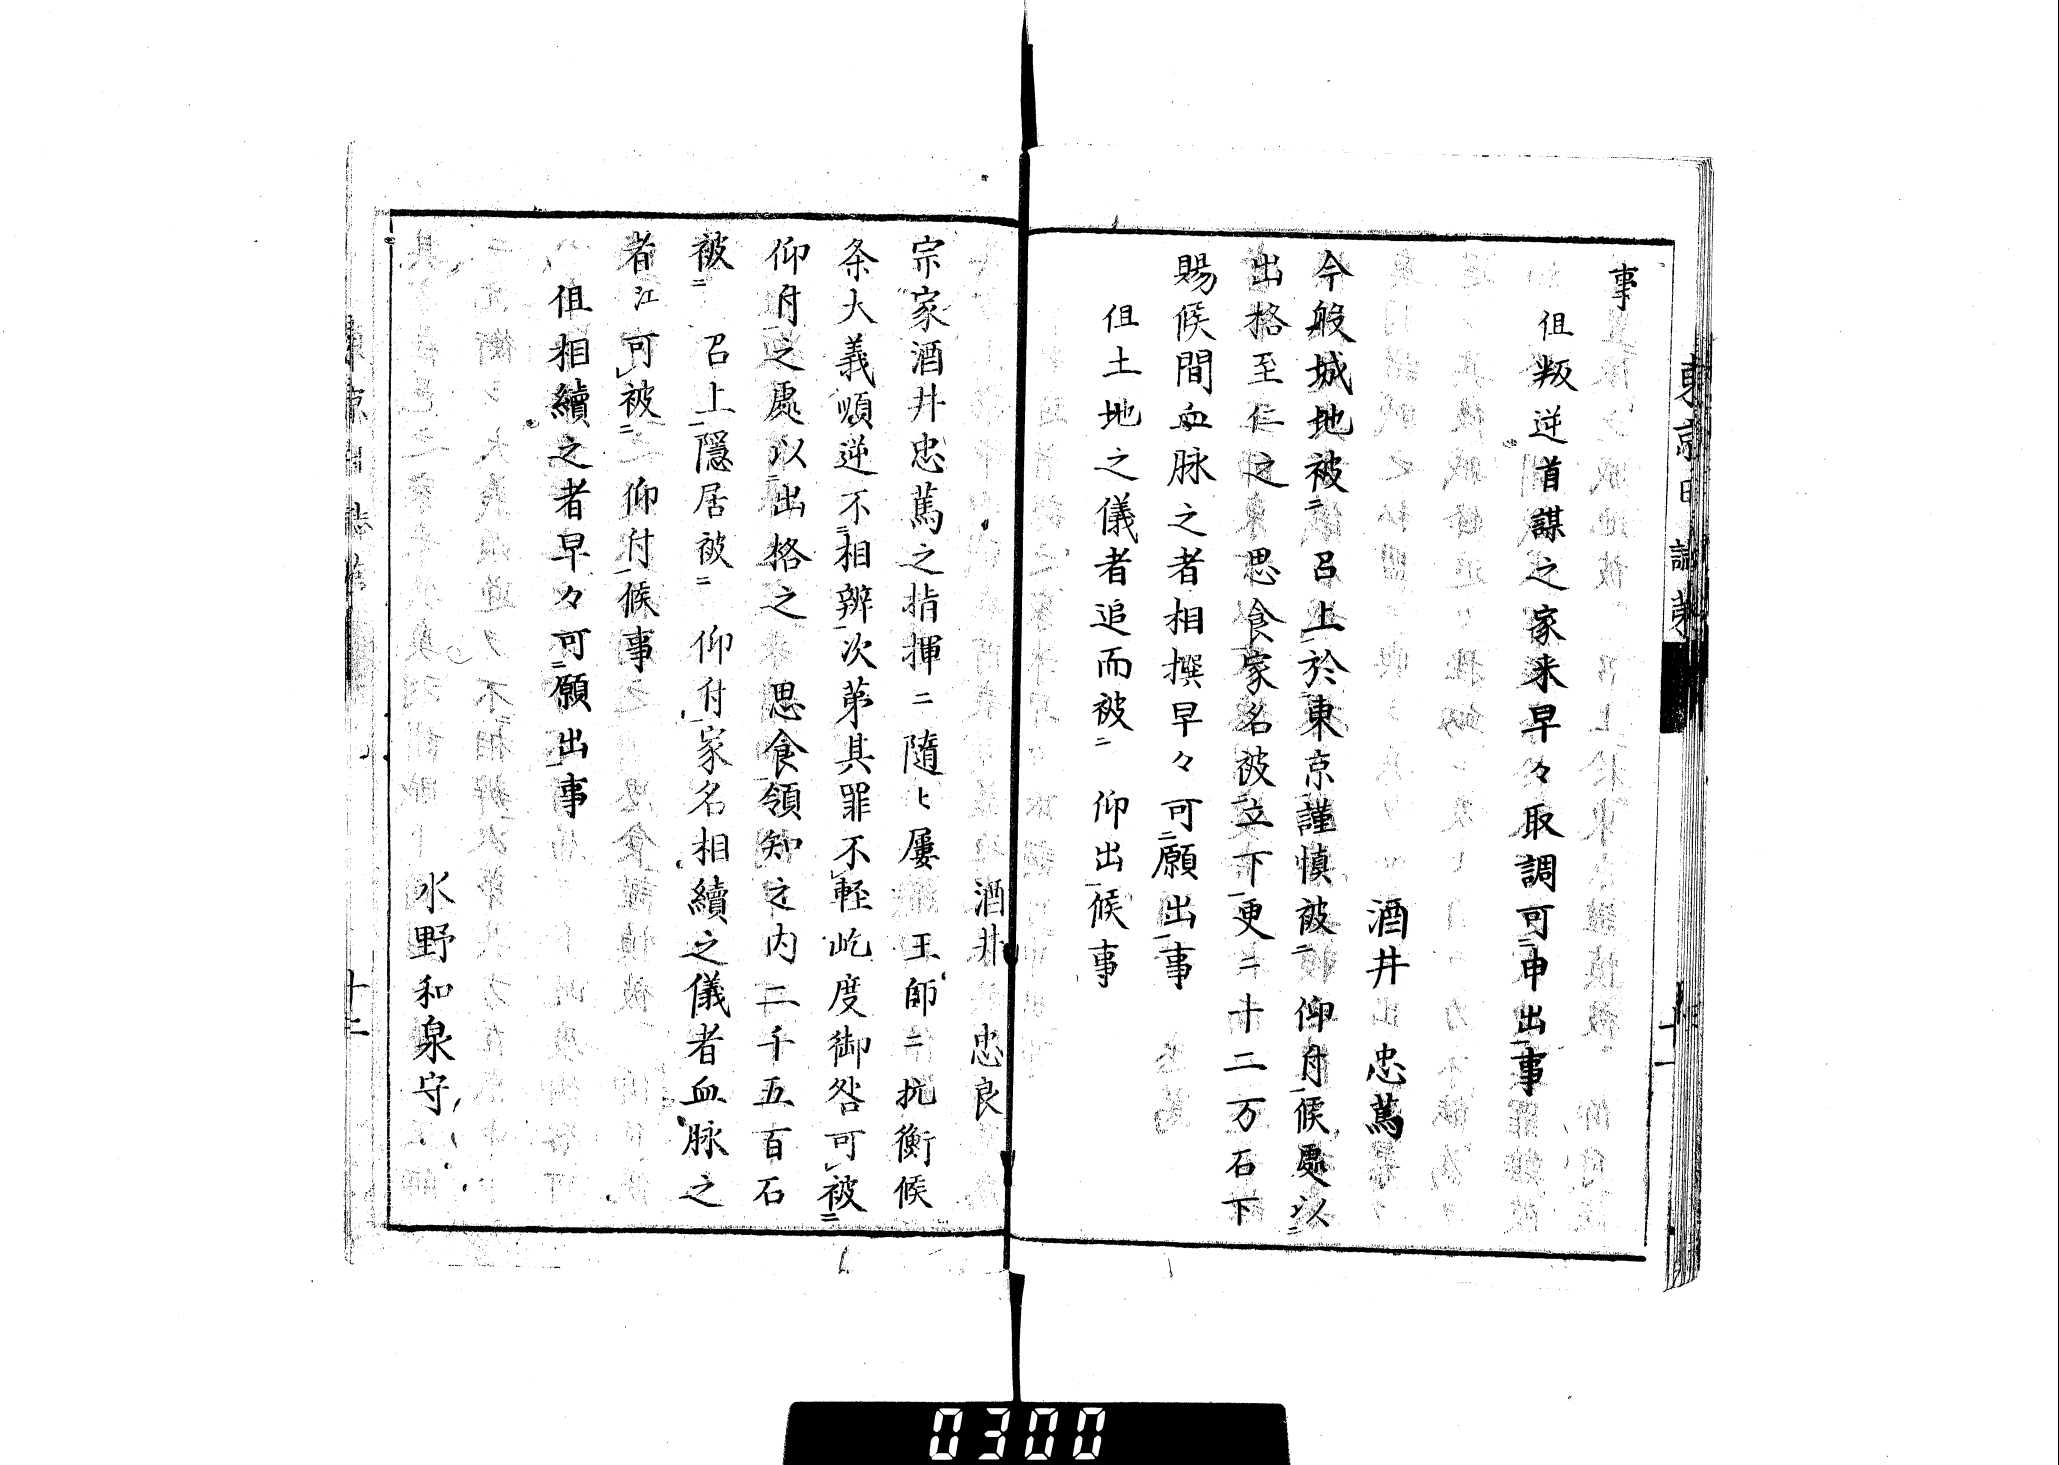 事
但叛逆首謀之家来早々取調可申出事
酒井忠篤
今般城地被召上於東京謹慎被仰付候處以
出格至仁之思食家名被立下更ニ十二万石下
賜候間血脉之者相撰早々可願出事
但土地之儀者追而被仰出候事
酒井忠良
宗家酒井忠篤之指揮ニ隨ヒ屢王師ニ抗衡候
条大義順逆不相辨次第其罪不輕屹度御咎可被
仰付之處以出格之思食領知之内二千五百石
被召上隱居被仰付家名相續之儀者血脉之
者江可被仰付候事
但相續之者早々可願出事
水野和泉守
十一
十二
0300